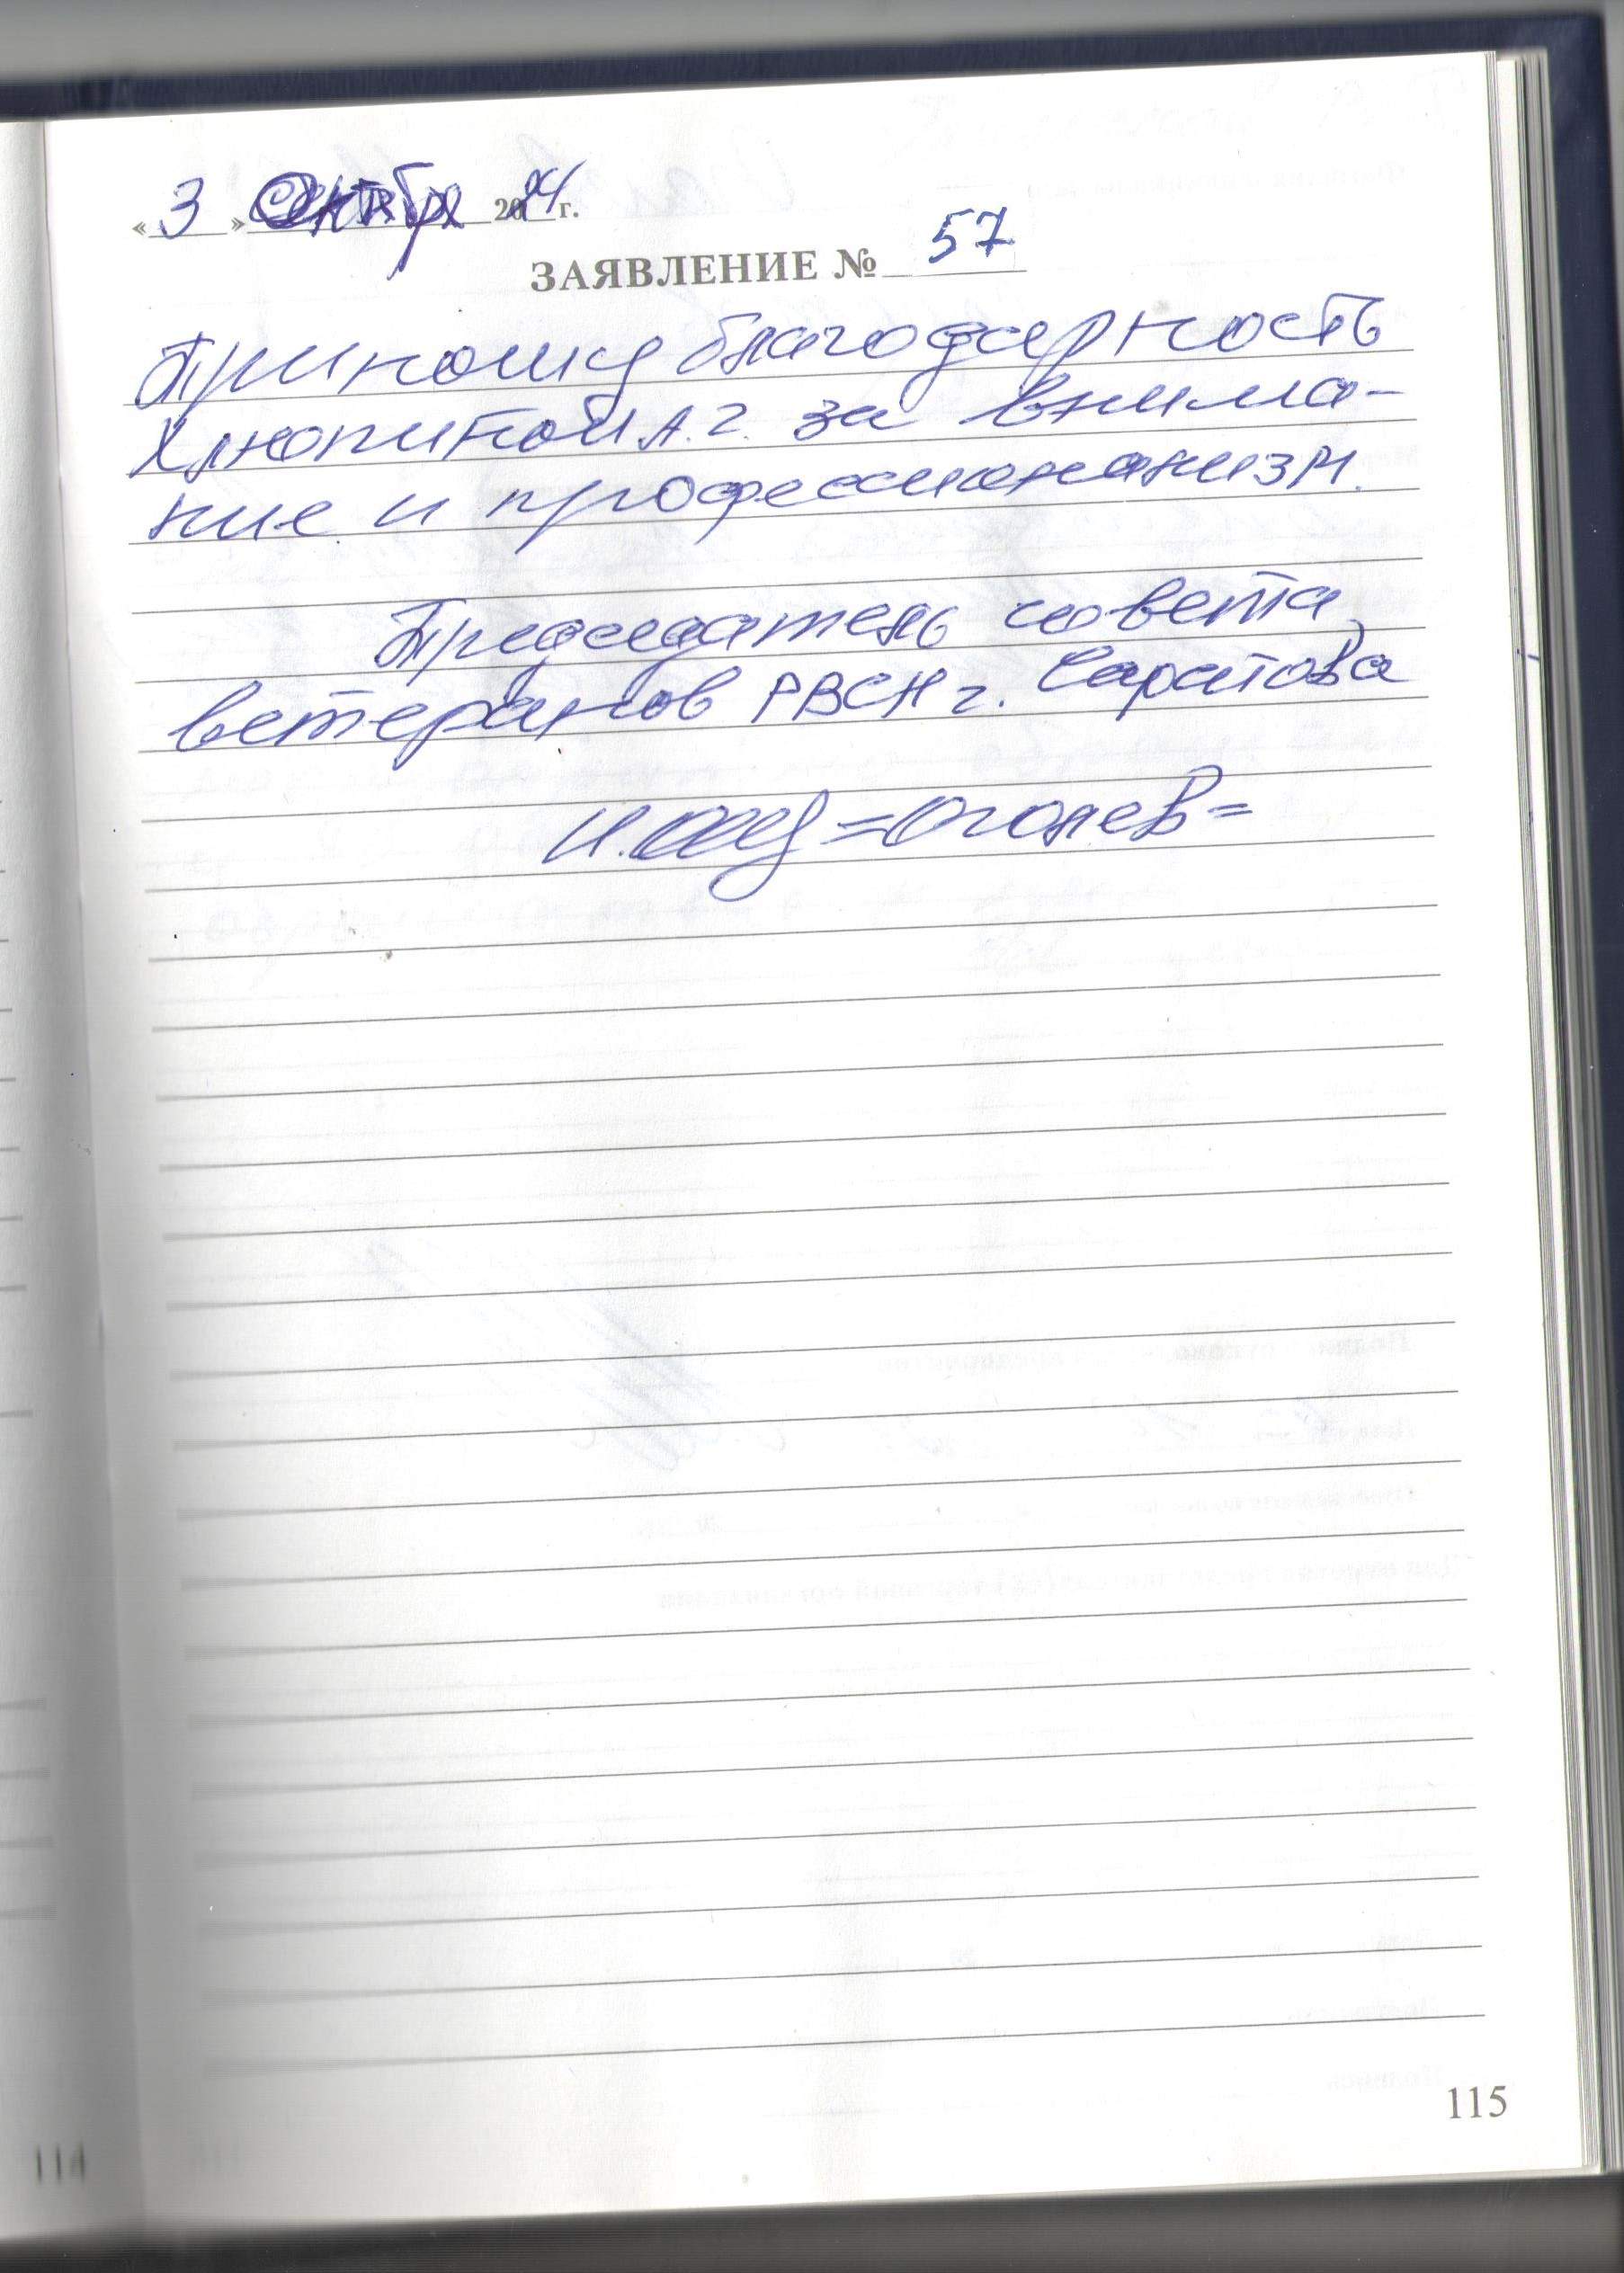 « 3 » Октября 2024 г.
ЗАЯВЛЕНИЕ № 57
Приношу благодарность
Хлюпиной А. Г. за внима-
ние и профессионализм.
Председатель совета
ветеранов РВСН г. Саратова
=Оголев=
115
114